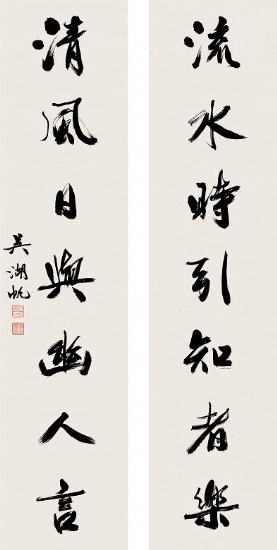 流水時引知者樂
清風日與幽人言
吳湖帆